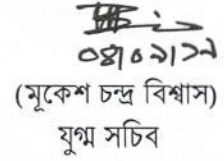 ০৪/০৯/১৭
(মুকেশ চন্দ্র বিশ্বাস)
যুগ্ম সচিব